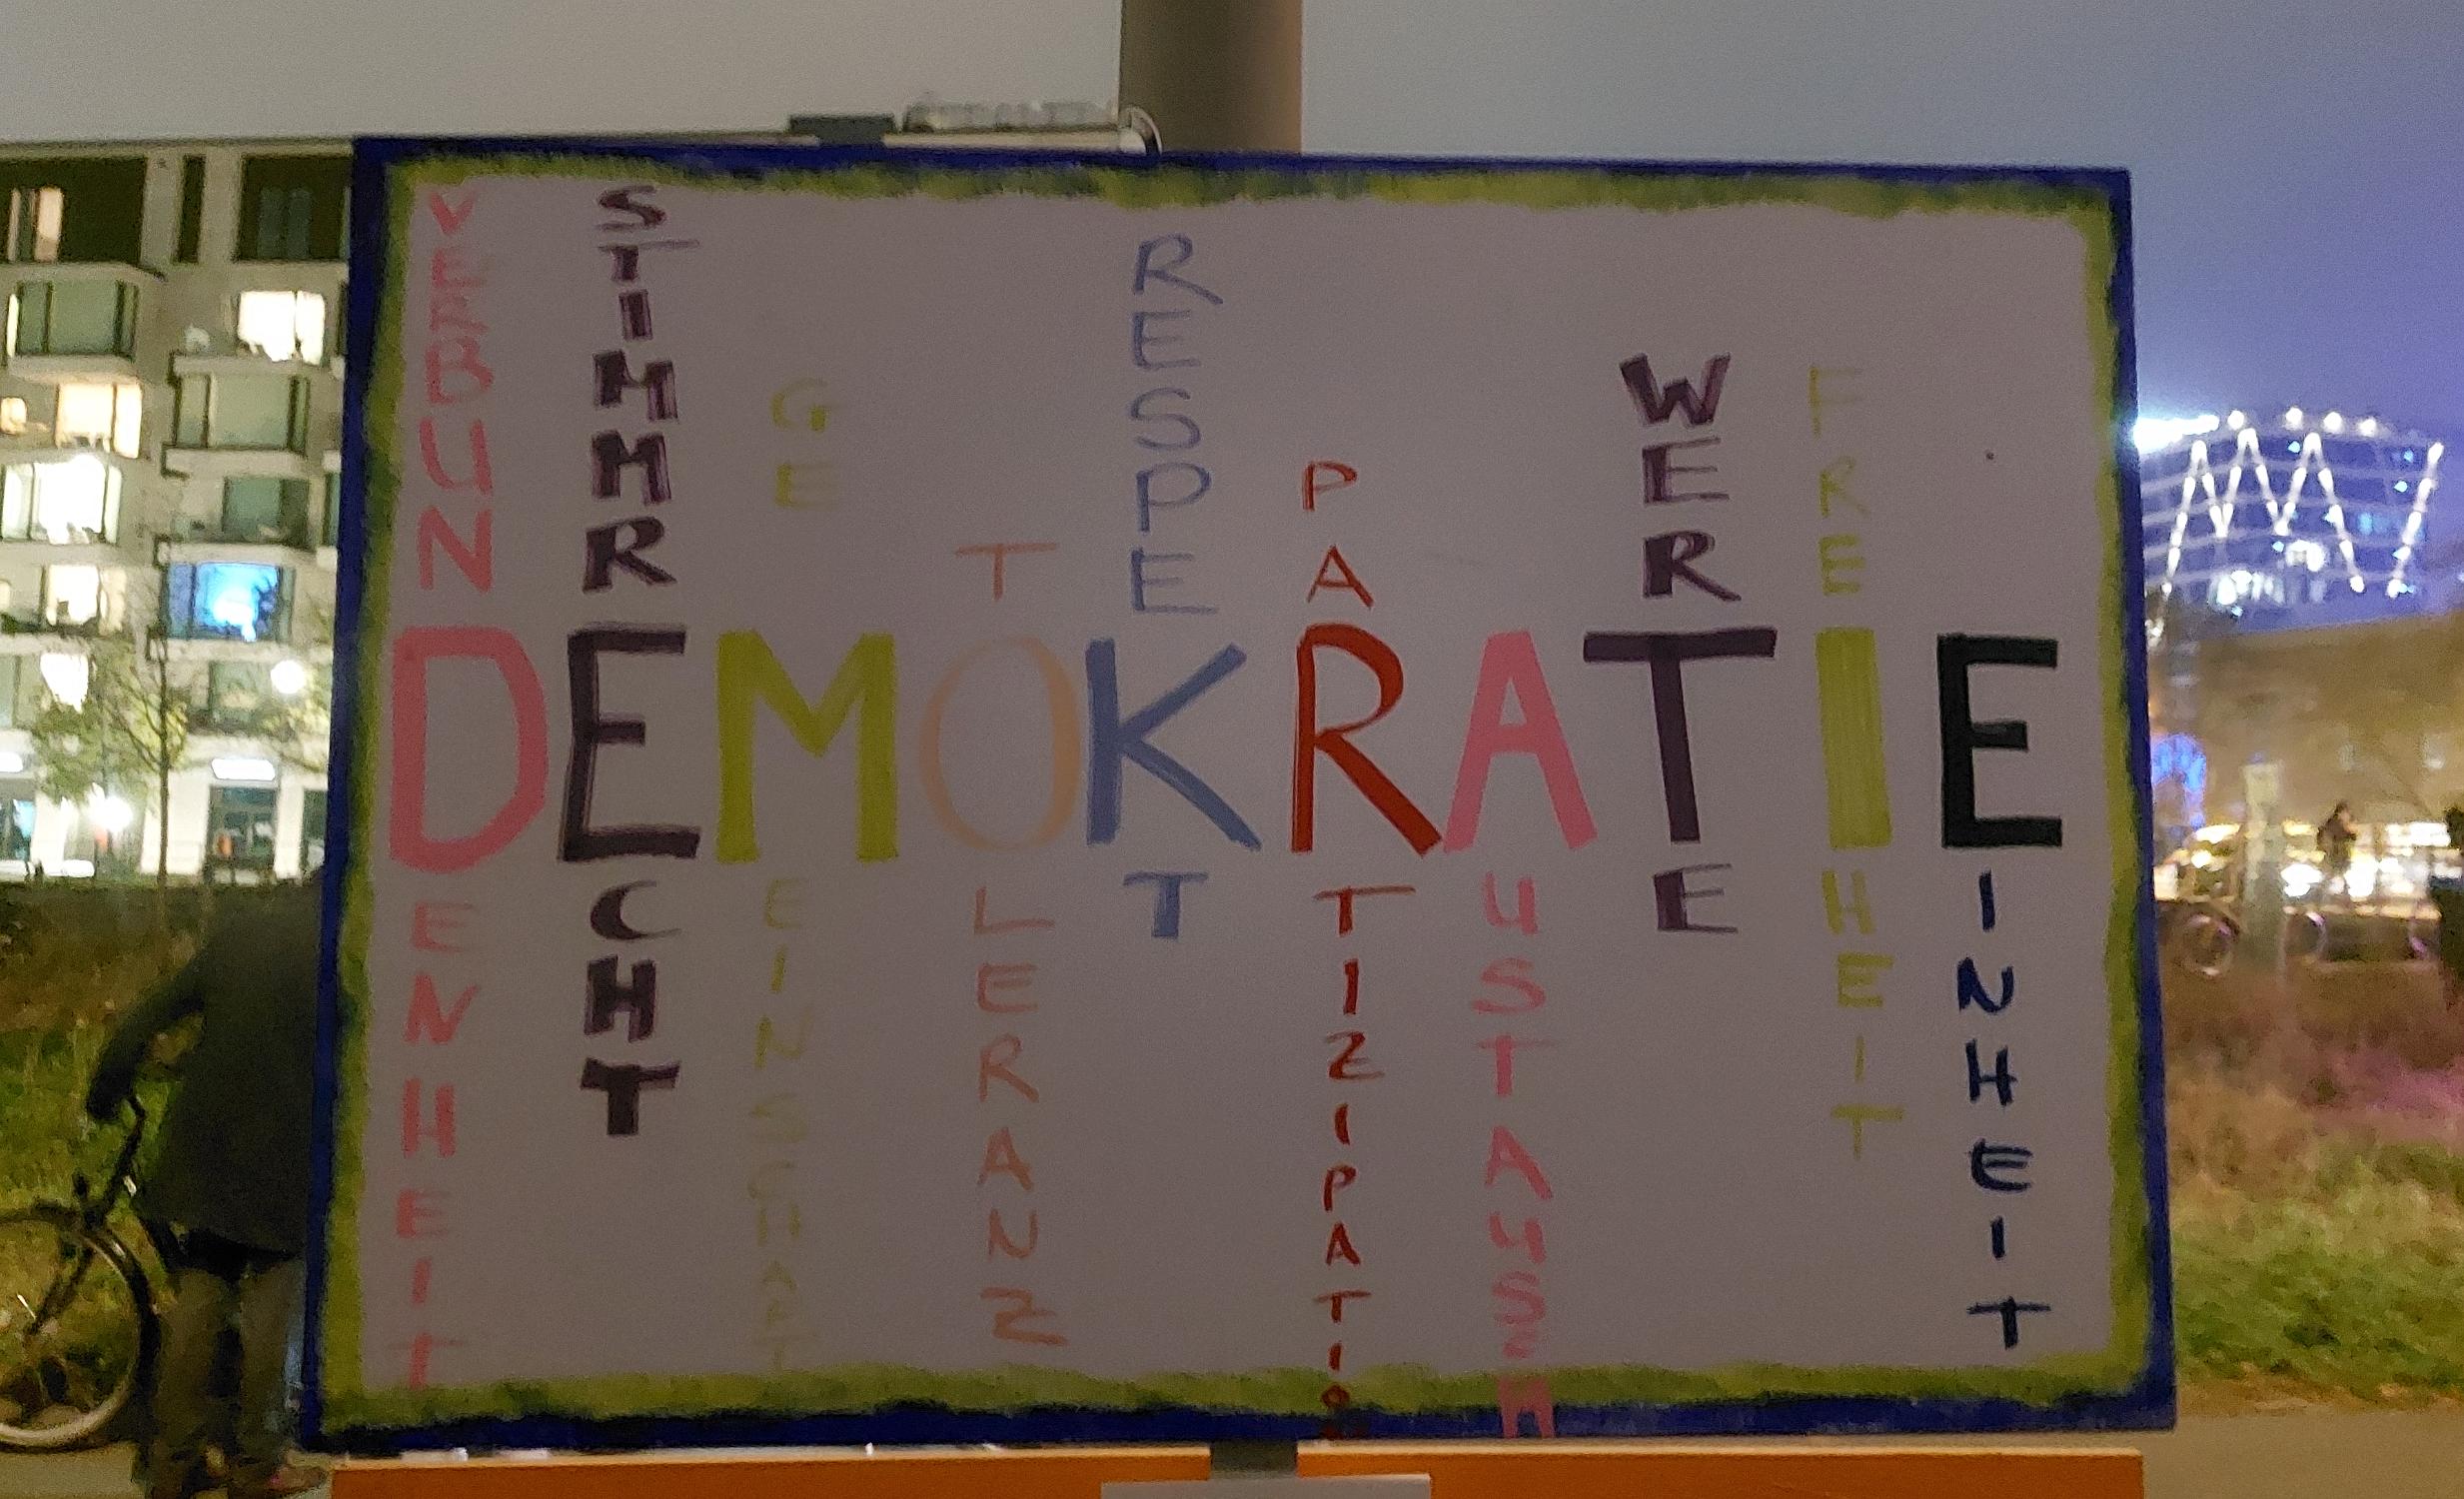 DEMOKRATIE
VERBUNDENHEIT
STIMMRECHT
GEMEINSCHAFT
TOLERANZ
RESPEKT
PARTIZIPATION
AUSTAUSCH
WERTE
FREIHEIT
EINHEIT